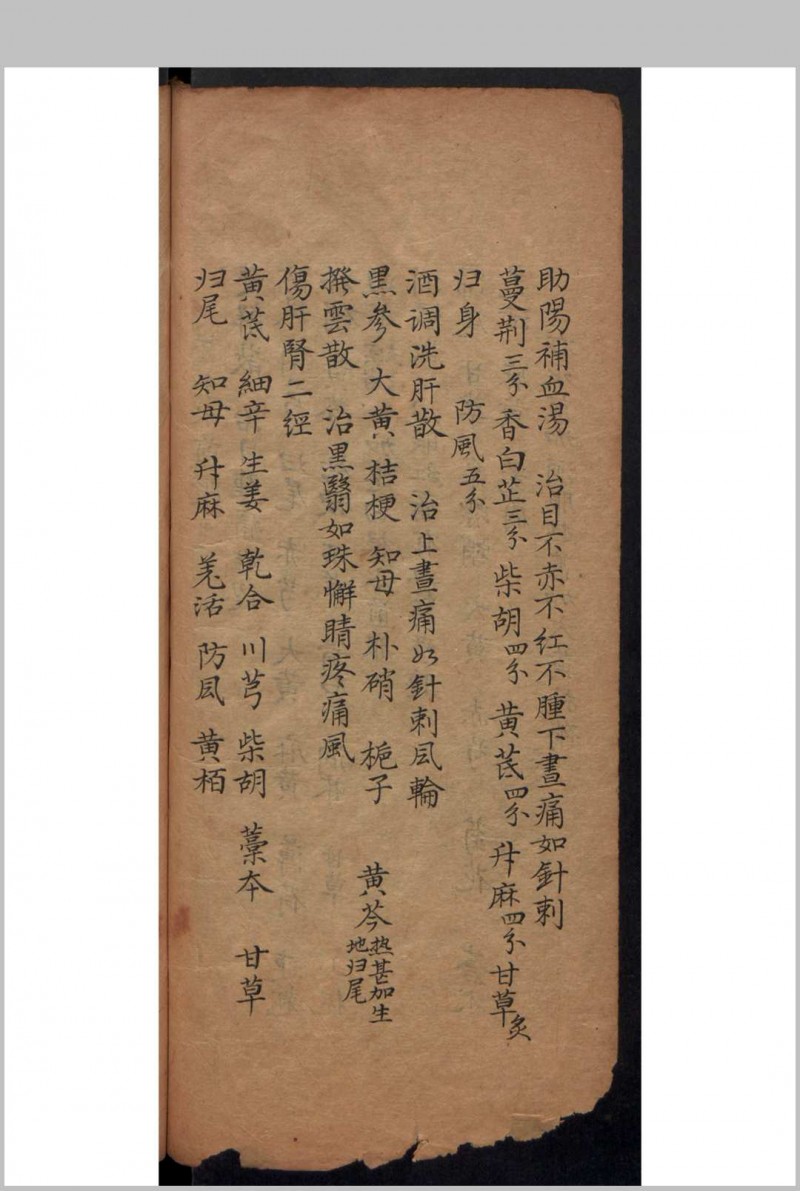 助陽補血湯 治目不赤不红不腫下晝痛如針刺
蔓荆三分香白芷三分柴胡四分黄芪四分升麻四分甘草炙
归身 防風五分
酒调洗肝散 治上晝痛如針刺风輪
黒參大黄桔梗知母朴硝 梔子 黄芩热甚加生地归尾
撥雲散 治黒翳如珠懈睛疼痛風
傷肝腎二經
黄芪細辛生姜乾合川芎柴胡 藁本 甘草
归尾 知母升麻羌活防风黄栢